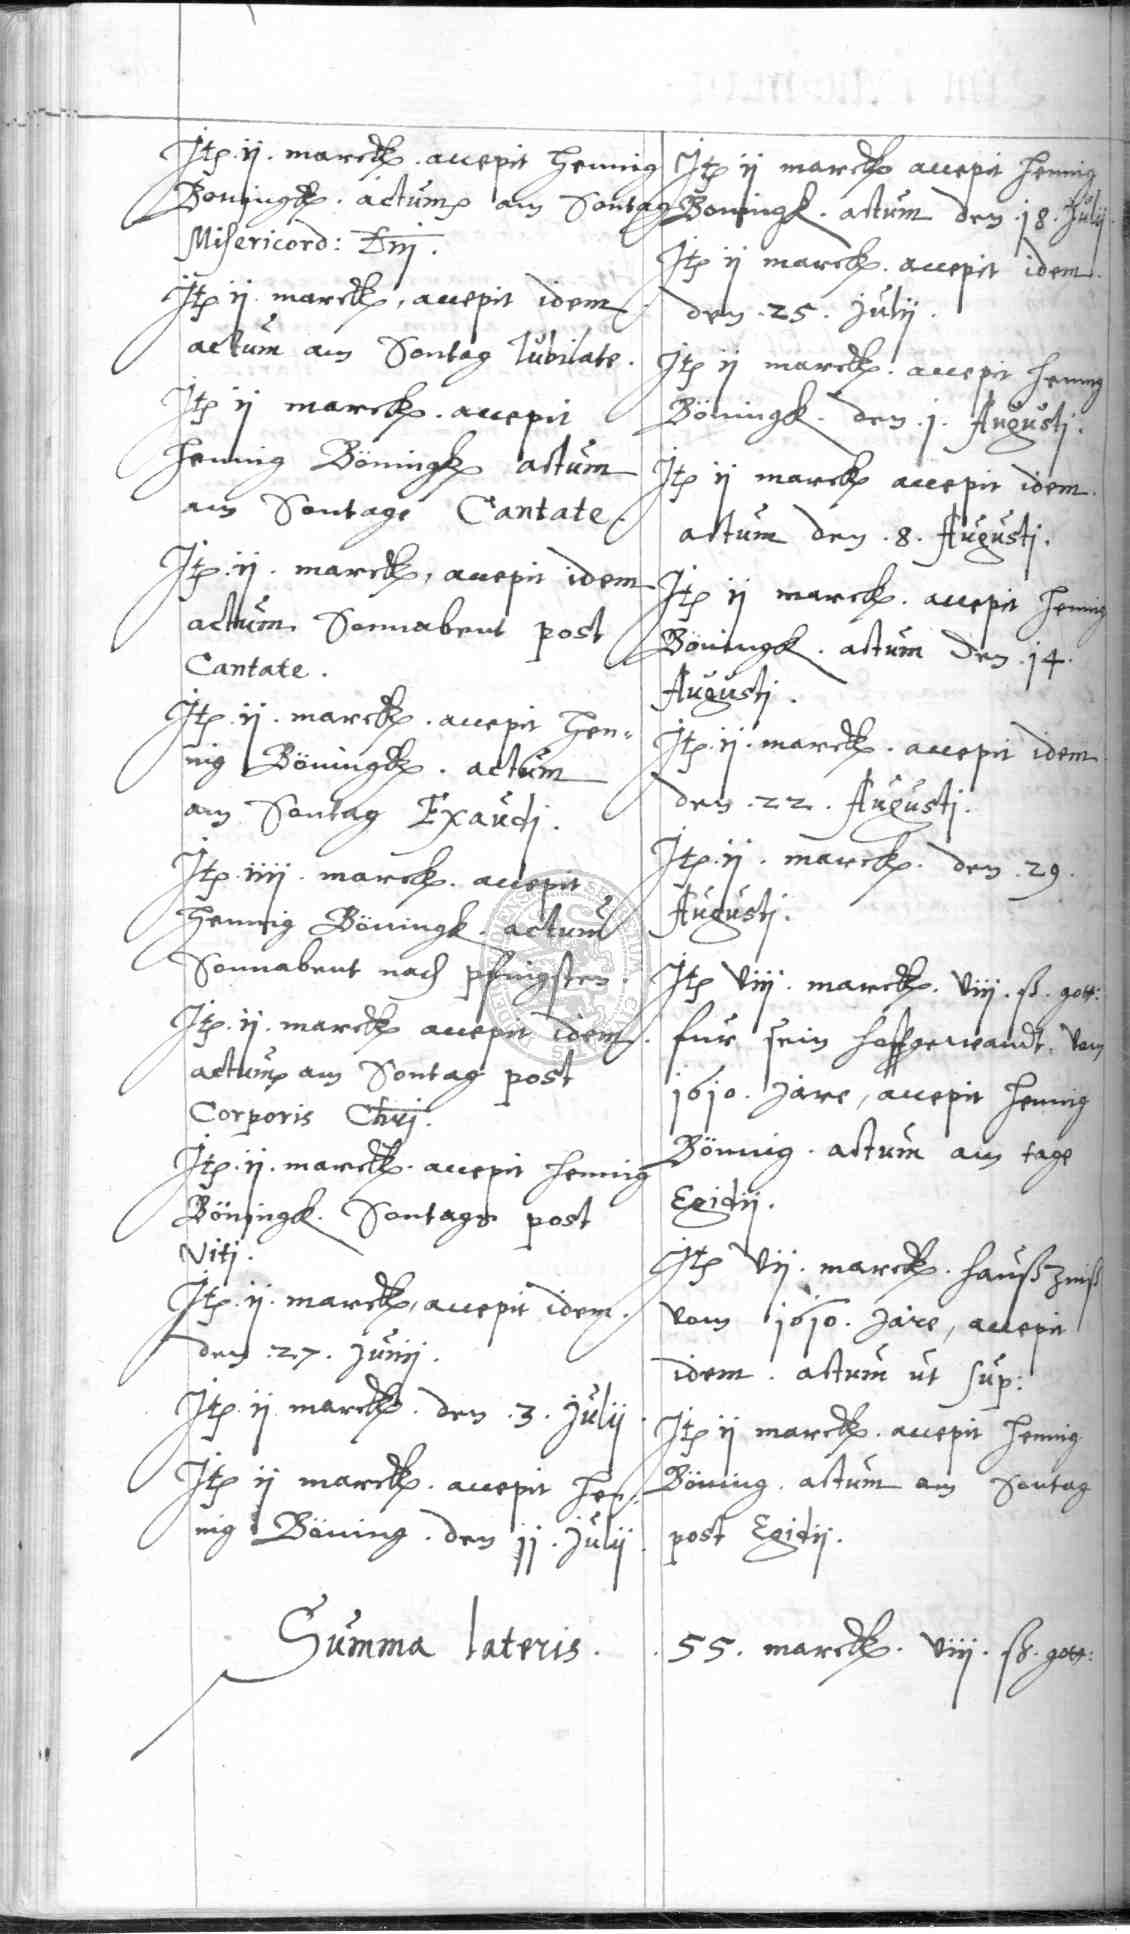 Itē. ij. marck. accepit Hennig
Boningk. actum am Sontag
Misericord: Dn̄j.
Itē ij. marck, accepit idem
actum am Sontag Iubilate.
Itē ij marck. accepit
Hennig Böningk actum
am Sontage Cantate.
Itē. ij. marck, accepit idem
actum Sonnabent post
Cantate.
Itē. ij. marck. accepit Hen-
nig Böningk. actum
am Sontag Exaudi.
Itē. iiij. marck. accepit
Hennig Böningk. actum
Sonnabent nach pfingsten.
Itē. ij. marck accepit idem.
actum am Sontag post
Corporis Chr̄j.
Itē. ij. marck. accepit Hennig
Böningk. Sontags post
Viti.
Itē. ij. marck, accepit idem.
den .27. Junij.
Itē. ij marck. den .3. Julij
Itē ij marck. accepit Hen-
nig Böning. den 11. Julij.
Itē ij marck accepit Hennig
Boningk. actum den .18. Julij.
Itē ij marck. accepit idem.
den .25. Julij.
Itē ij marck. accepit Hennig
Böningk. den .1. Augusti.
Itē ij marck accepit idem.
actum den .8. Augusti.
Itē ij marck. accepit Hennig
Böningk. actum den .14.
Augusti.
Itē. ij. marck. accepit idem.
den .22. Augusti.
Itē. ij. marck. den .29.
Augusti.
Itē viij. marck. viij. ß. gott:
fur sein hoffgewandt, vom
1610. Jare, accepit Hennig
Böning. actum am tage
Egidij.
Itē vij. marck. haußzinß
vom 1610. Jare, accepit
idem. actum ut sup:
Itē ij marck. accepit Hennig
Böning. actum am Sontag
post Egidij.
Summa lateris. . 55. marck. viij. ß. gott: